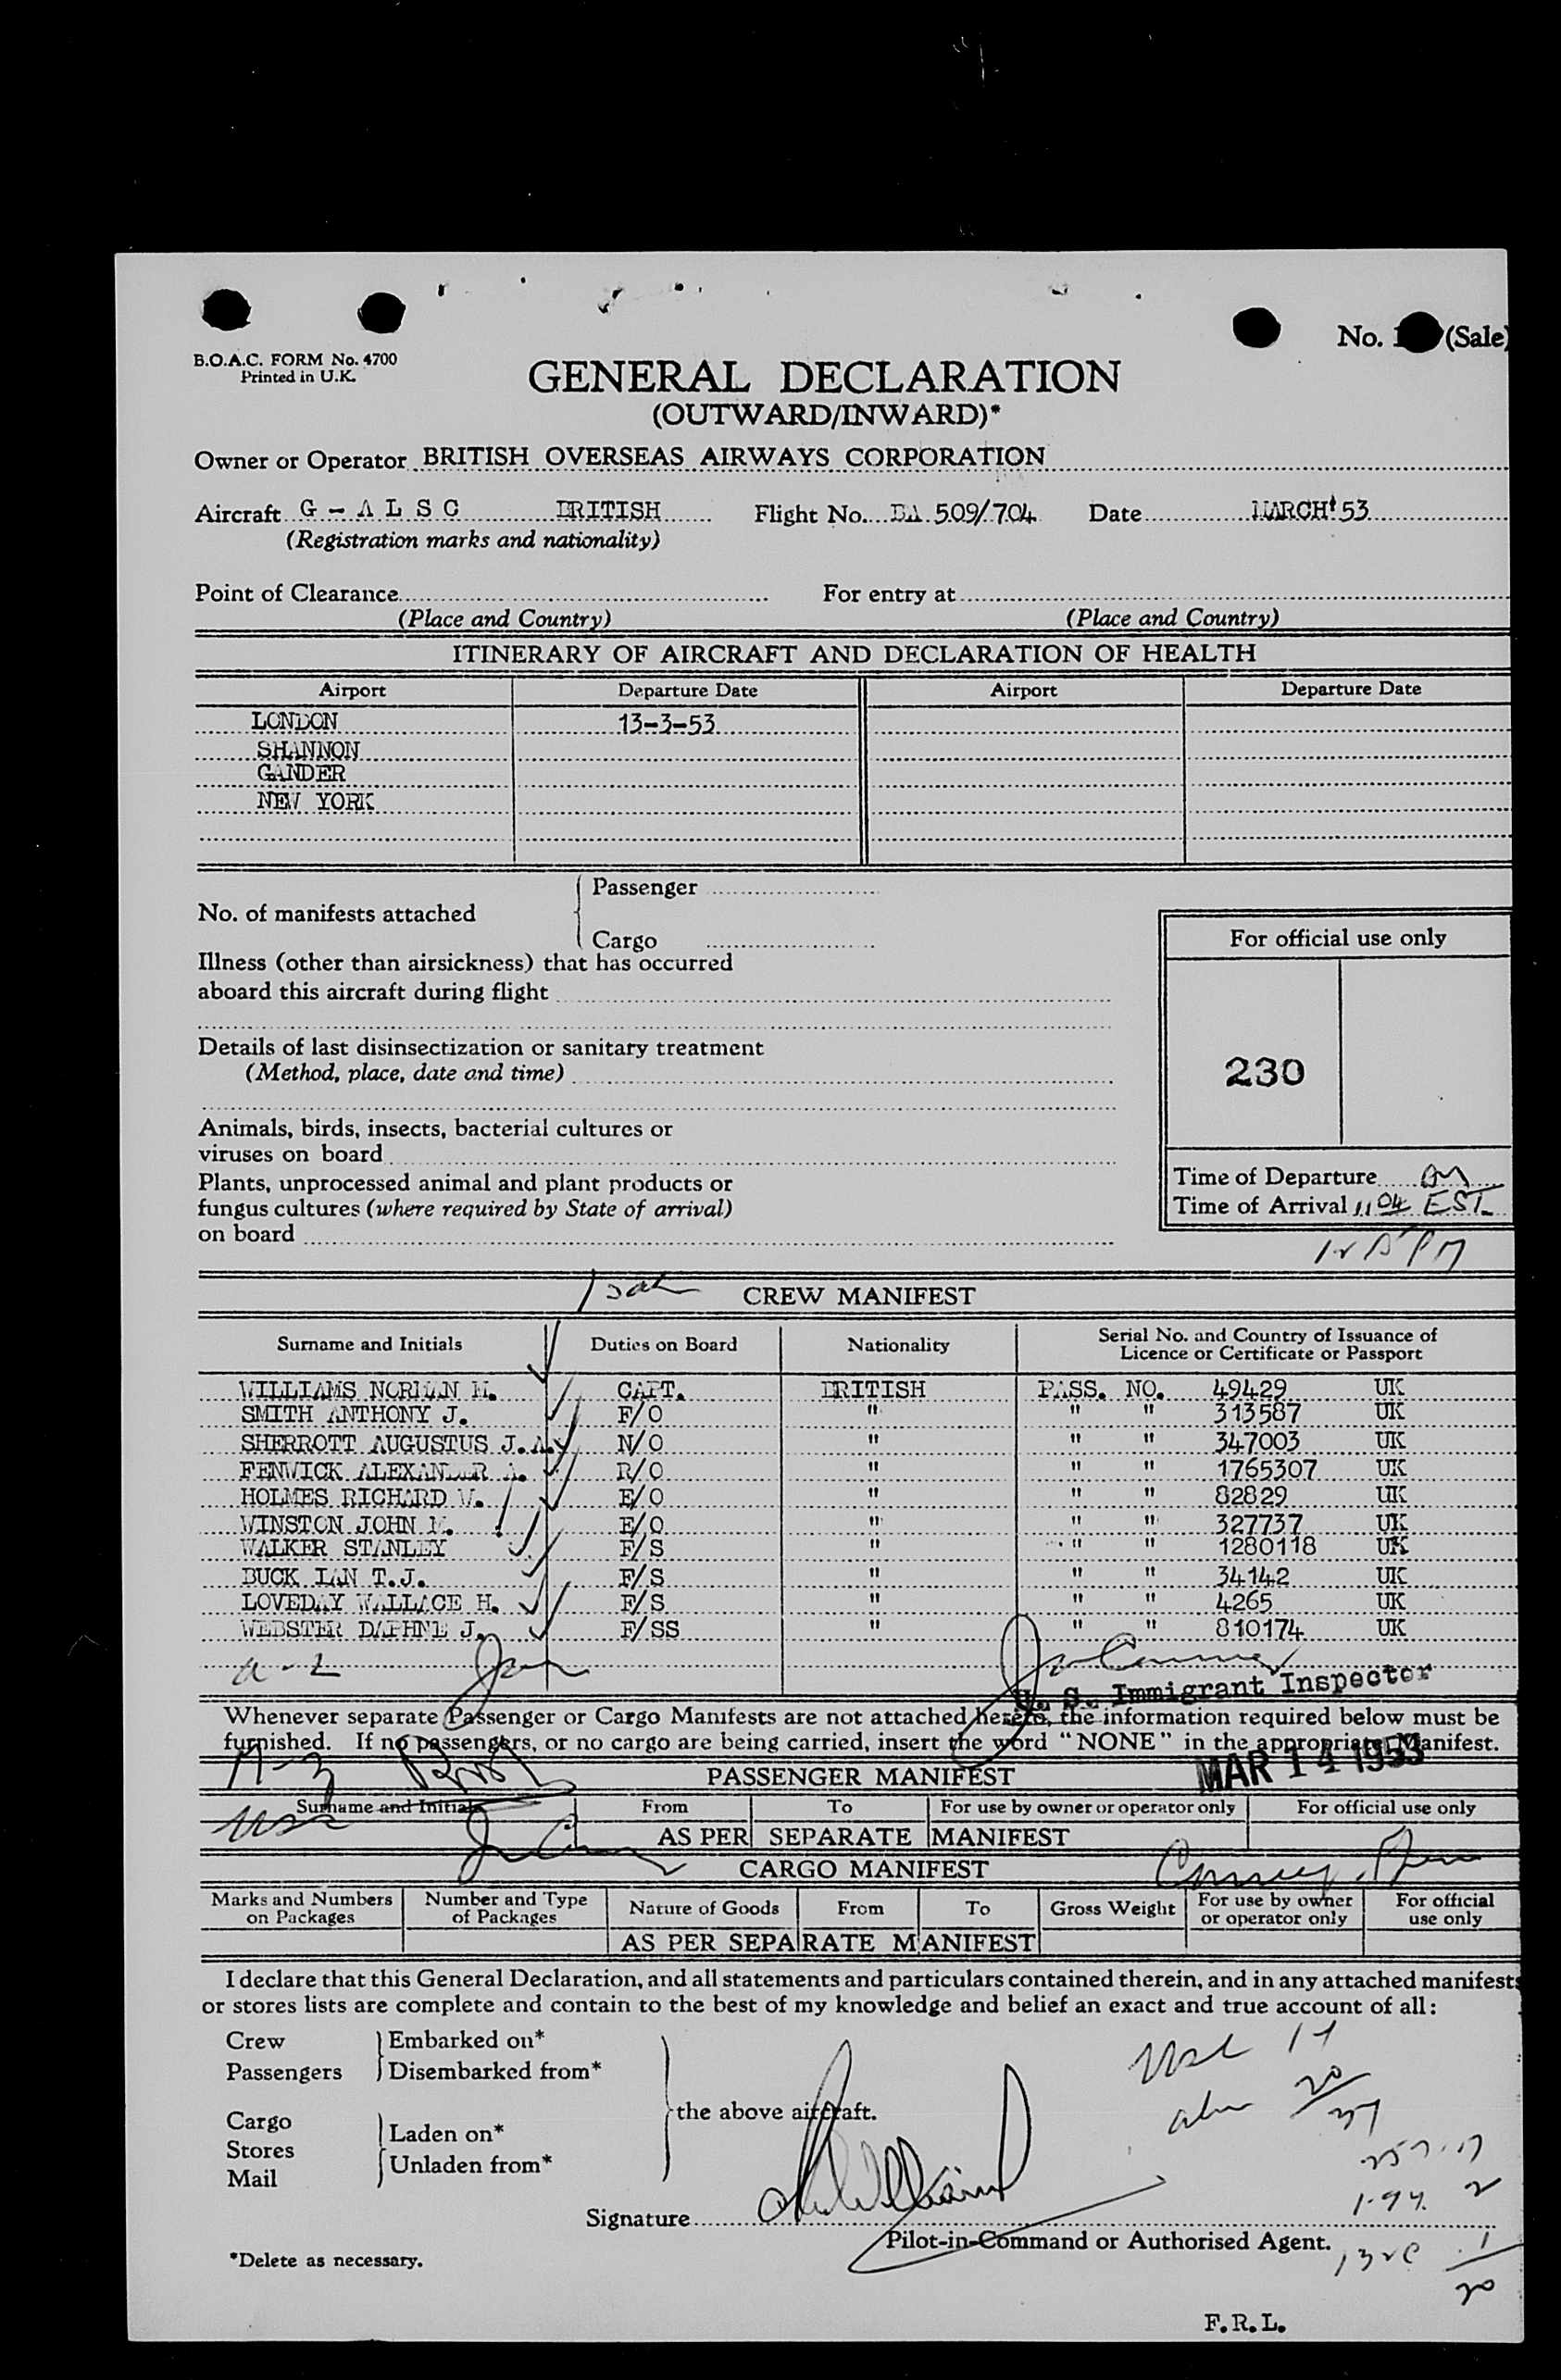 B.O.A.C. FORM No. 4700
Printed in U.K.
No. (Sale)
GENERAL DECLARATION
(OUTWARD/INWARD)*
Owner or Operator BRITISH OVERSEAS AIRWAYS CORPORATION
Aircraft G - A L S C BRITISH Flight No. BA 509/704 Date MARCH'53
(Registration marks and nationality)
Point of Clearance For entry at
(Place and Country) (Place and Country)
ITINERARY OF AIRCRAFT AND DECLARATION OF HEALTH
Airport Departure Date Airport Departure Date
LONDON 13-3-53
SHANNON
GANDER
NEW YORK
Passenger
No. of manifests attached
Cargo
Illness (other than airsickness) that has occurred
aboard this aircraft during flight
For official use only
Details of last disinsectization or sanitary treatment
(Method, place, date and time)
230
Animals, birds, insects, bacterial cultures or
viruses on board
Plants, unprocessed animal and plant products or
fungus cultures (where required by State of arrival)
on board
Time of Departure
Time of Arrival 11 04 EST
CREW MANIFEST
Surname and Initials Duties on Board Nationality Serial No. and Country of Issuance of
Licence or Certificate or Passport
WILLIAMS NORMAN M. CAPT. BRITISH PASS. NO. 49429 UK
SMITH ANTHONY J. F/O " " " 313587 UK
SHERROTT AUGUSTUS J.A. N/O " " " 347003 UK
FENWICK ALEXANDER A. R/O " " " 1765307 UK
HOLMES RICHARD W. E/O " " " 82829 UK
WINSTON JOHN M. E/O " " " 327737 UK
WALKER STANLEY F/S " " " 1280118 UK
BUCK IAN T.J. F/S " " " 34142 UK
LOVEDAY WALLACE H. F/S " " " 4265 UK
WEBSTER DAPHNE J. F/SS " " " 810174 UK
U. S. Immigrant Inspector
Whenever separate Passenger or Cargo Manifests are not attached hereto, the information required below must be
furnished. If no passengers, or no cargo are being carried, insert the word "NONE" in the appropriate Manifest.
MAR 14 1953
PASSENGER MANIFEST
Surname and Initials From To For use by owner or operator only For official use only
AS PER SEPARATE MANIFEST
CARGO MANIFEST
Marks and Numbers on Packages Number and Type of Packages Nature of Goods From To Gross Weight For use by owner or operator only For official use only
AS PER SEPARATE MANIFEST
I declare that this General Declaration, and all statements and particulars contained therein, and in any attached manifests
or stores lists are complete and contain to the best of my knowledge and belief an exact and true account of all:
Crew Embarked on*
Passengers Disembarked from*
the above aircraft.
Cargo
Laden on*
Stores
Unladen from*
Mail
Signature
Pilot-in-Command or Authorised Agent.
*Delete as necessary.
F.R.L.